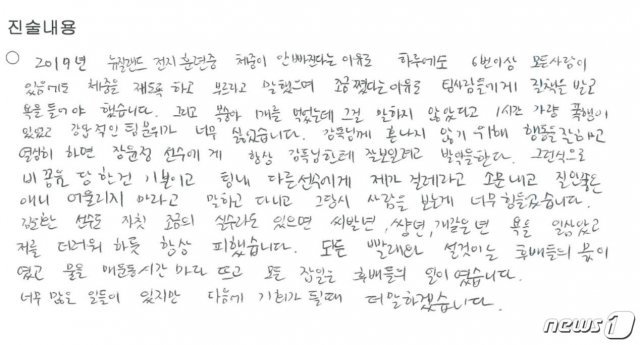 진술내용
○ 2019년 뉴질랜드 전지훈련중 체중이 안빠진다는 이유로 하루에도 6번이상 모든사람이
있음에도 체중을 재도록 하고 부르라고 말했으며 조금쪘다는이유로 팀사람들에게 질책을 받고
욕을 들어야 했습니다. 그리고 복숭아 1개를 먹었는데 그걸 말하지 않았다고 1시간 가량 폭행이
있었고 강압적인 팀분위기가 너무 싫었습니다. 감독님께 혼나지 않기 위해 행동을 잘하고
열심히 하면 장윤정 선수에게 항상 감독님한테 잘보일려고 발악을한다. 그런식으로
비꼼을 당한건 기본이고 팀내 다른선수에게 제가 걸레라고 소문내고 질안좋은
애니 어울리지 마라고 말하고 다니고 그런시 사람을 보는게 너무 힘들었습니다.
선수도 자칫 조금의 실수라도 있으면 씨발년, 썅년, 개같은년 욕을 일삼았고
저를 더러워 하듯 항상 피했습니다. 모든 빨래와 설겆이는 후배들의 몫이
였고 물을 매운동시간 마다 뜨고 모든 잡일은 후배들의 일이였습니다.
너무 많은 일들이 있지만 다음에 기회가 될때 더말하겠습니다.
news1